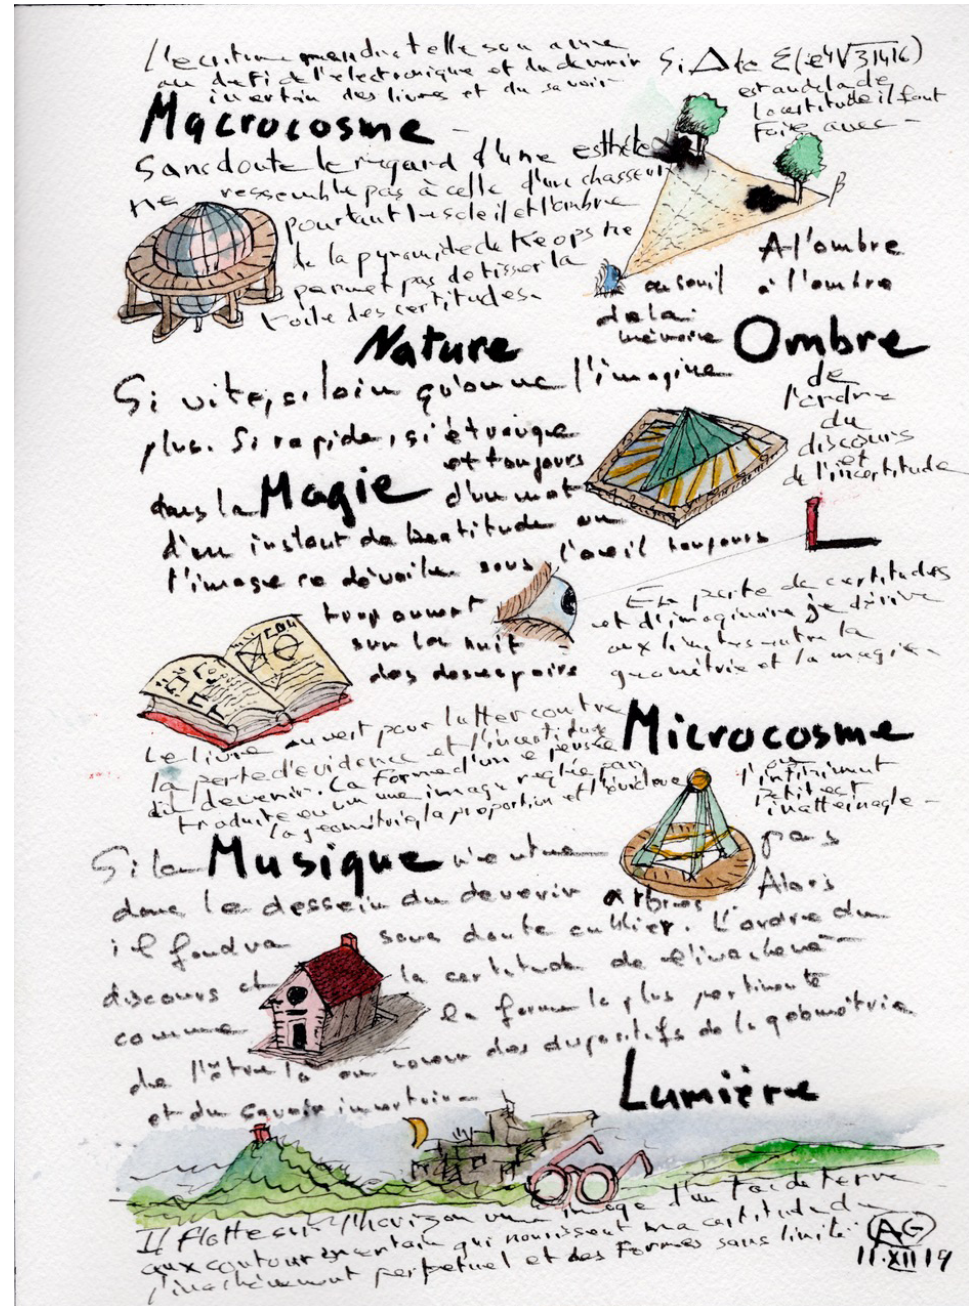 L'écriture perdra t elle son âme
au défi de l'électronique et du devenir
incertain des livres et du savoir
Si
est au delà de
la certitude il faut
faire avec -
Macrocosme -
Sans doute le regard d'une esthète
ne ressemble pas à celle d'un chasseur
pourtant le soleil et l'ombre
de la pyramide de Keops ne
permet pas de tisser la
toile des certitudes.
β
A l'ombre
à l'ombre
au seuil
de la
mémoire
Ombre
de
l'ordre
du
discours
et
de l'incertitude
Nature
Si vite, si loin qu'on ne l'imagine
plus. Si rapide, si étrange
et toujours
dans la Magie d'un mot
d'un instant de béatitude ou
l'image se dévoile sous l'oeil toujours
trop ouvert
sur la nuit
des desespoirs
En perte de certitudes
et d'imaginaire je dérive
aux limites entre la
géométrie et la magie.
Le livre ouvert pour lutter contre
la perte d'évidence et l'incertitude
du devenir. La forme d'une pensée
traduite en une image réglée par
la géométrie, la proportion et l'évidence
Microcosme
l'infiniment
petit est
inatteinagle -
Si la Musique n'entre pas
dans le dessein du devenir arbres. Alors
il faudra sans doute oublier. L'ordre du
discours et la certitude de l'inachevé
comme la forme la plus pertinente
de l'être la au coeur des dispositifs de la géométrie
et du savoir incertain -
Lumière
Il flotte sur l'horizon une image d'un fou de terre
aux contour incertain qui nourissent ma certitude du
l'inachèvement perpetuel et des formes sans limite.
AG
11.XII 19